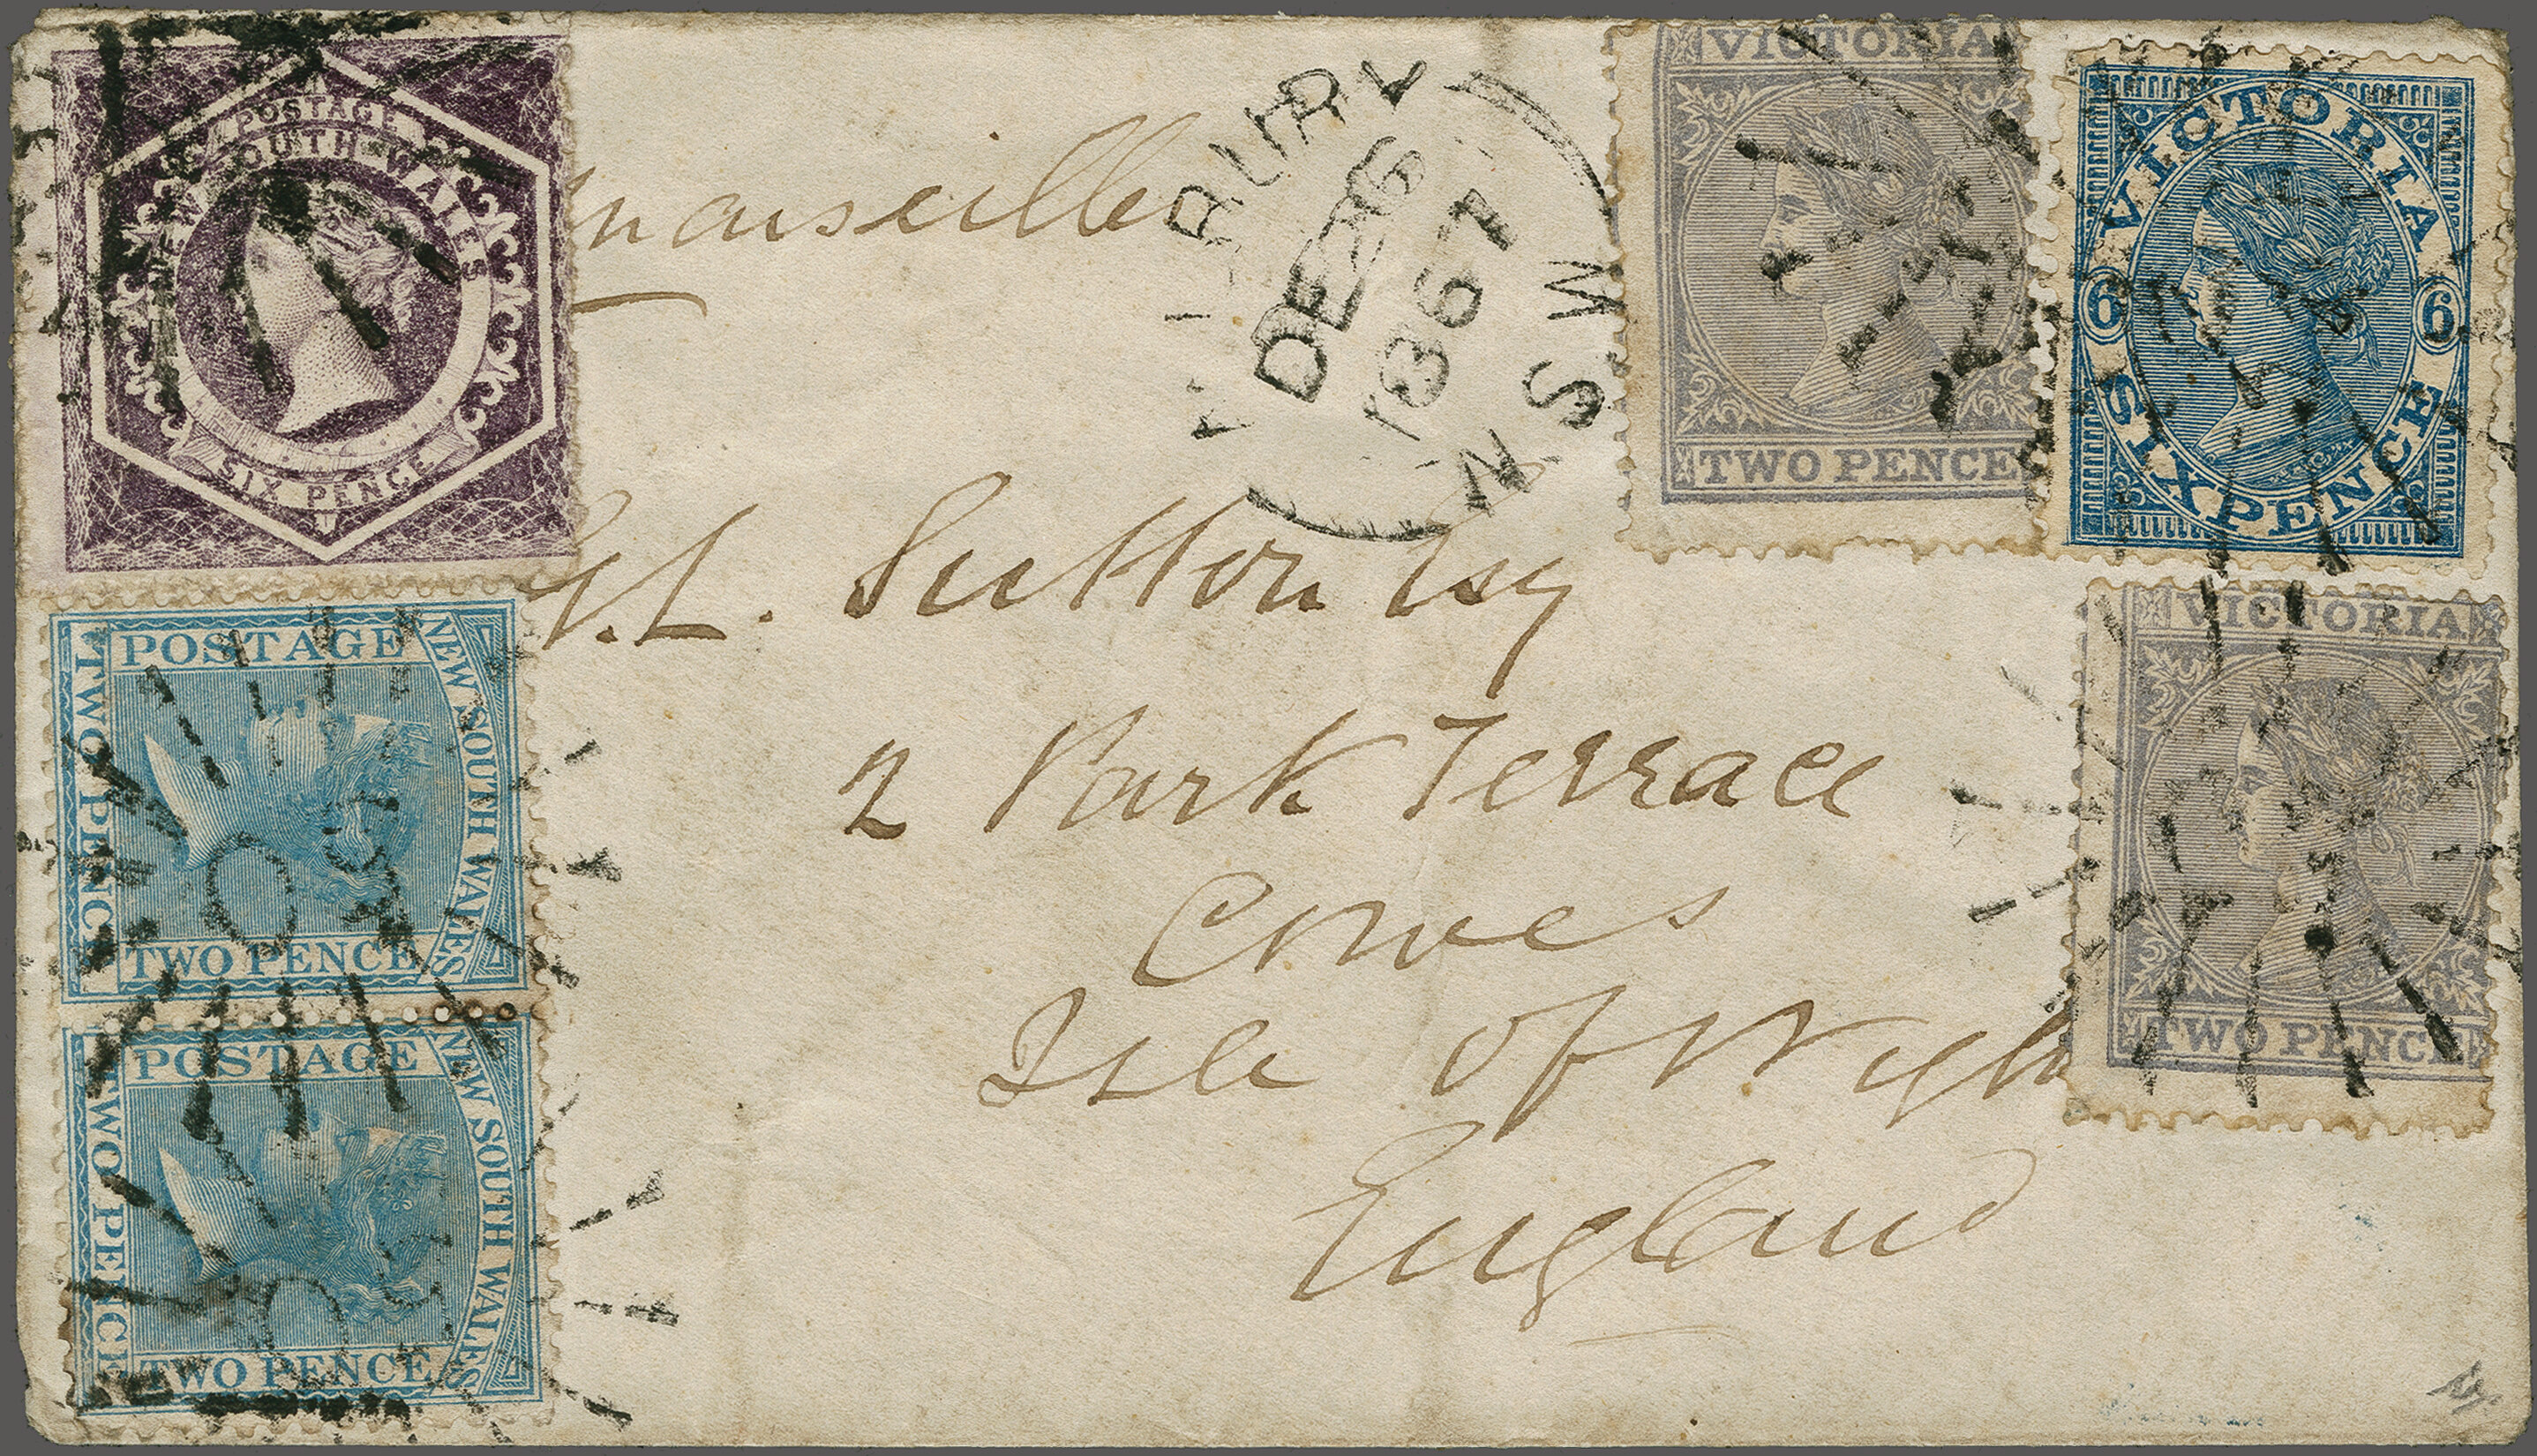 POSTAGE
NEW SOUTH WALES
SIX PENCE
POSTAGE
NEW SOUTH WALES
TWO PENCE
TWO PENCE
POSTAGE
NEW SOUTH WALES
TWO PENCE
TWO PENCE
Marseilles
ALBURY
DE 26
1867
N.S.W
VICTORIA
TWO PENCE
VICTORIA
6 6
SIX PENCE
VICTORIA
TWO PENCE
G. L. Sutton Esq
2 Park Terrace
Cowes
Isle of Wight
England